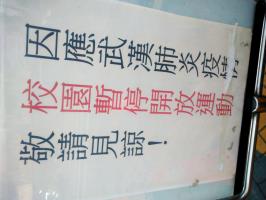 因應武漢肺炎疫情
校園暫停開放運動
敬請見諒!